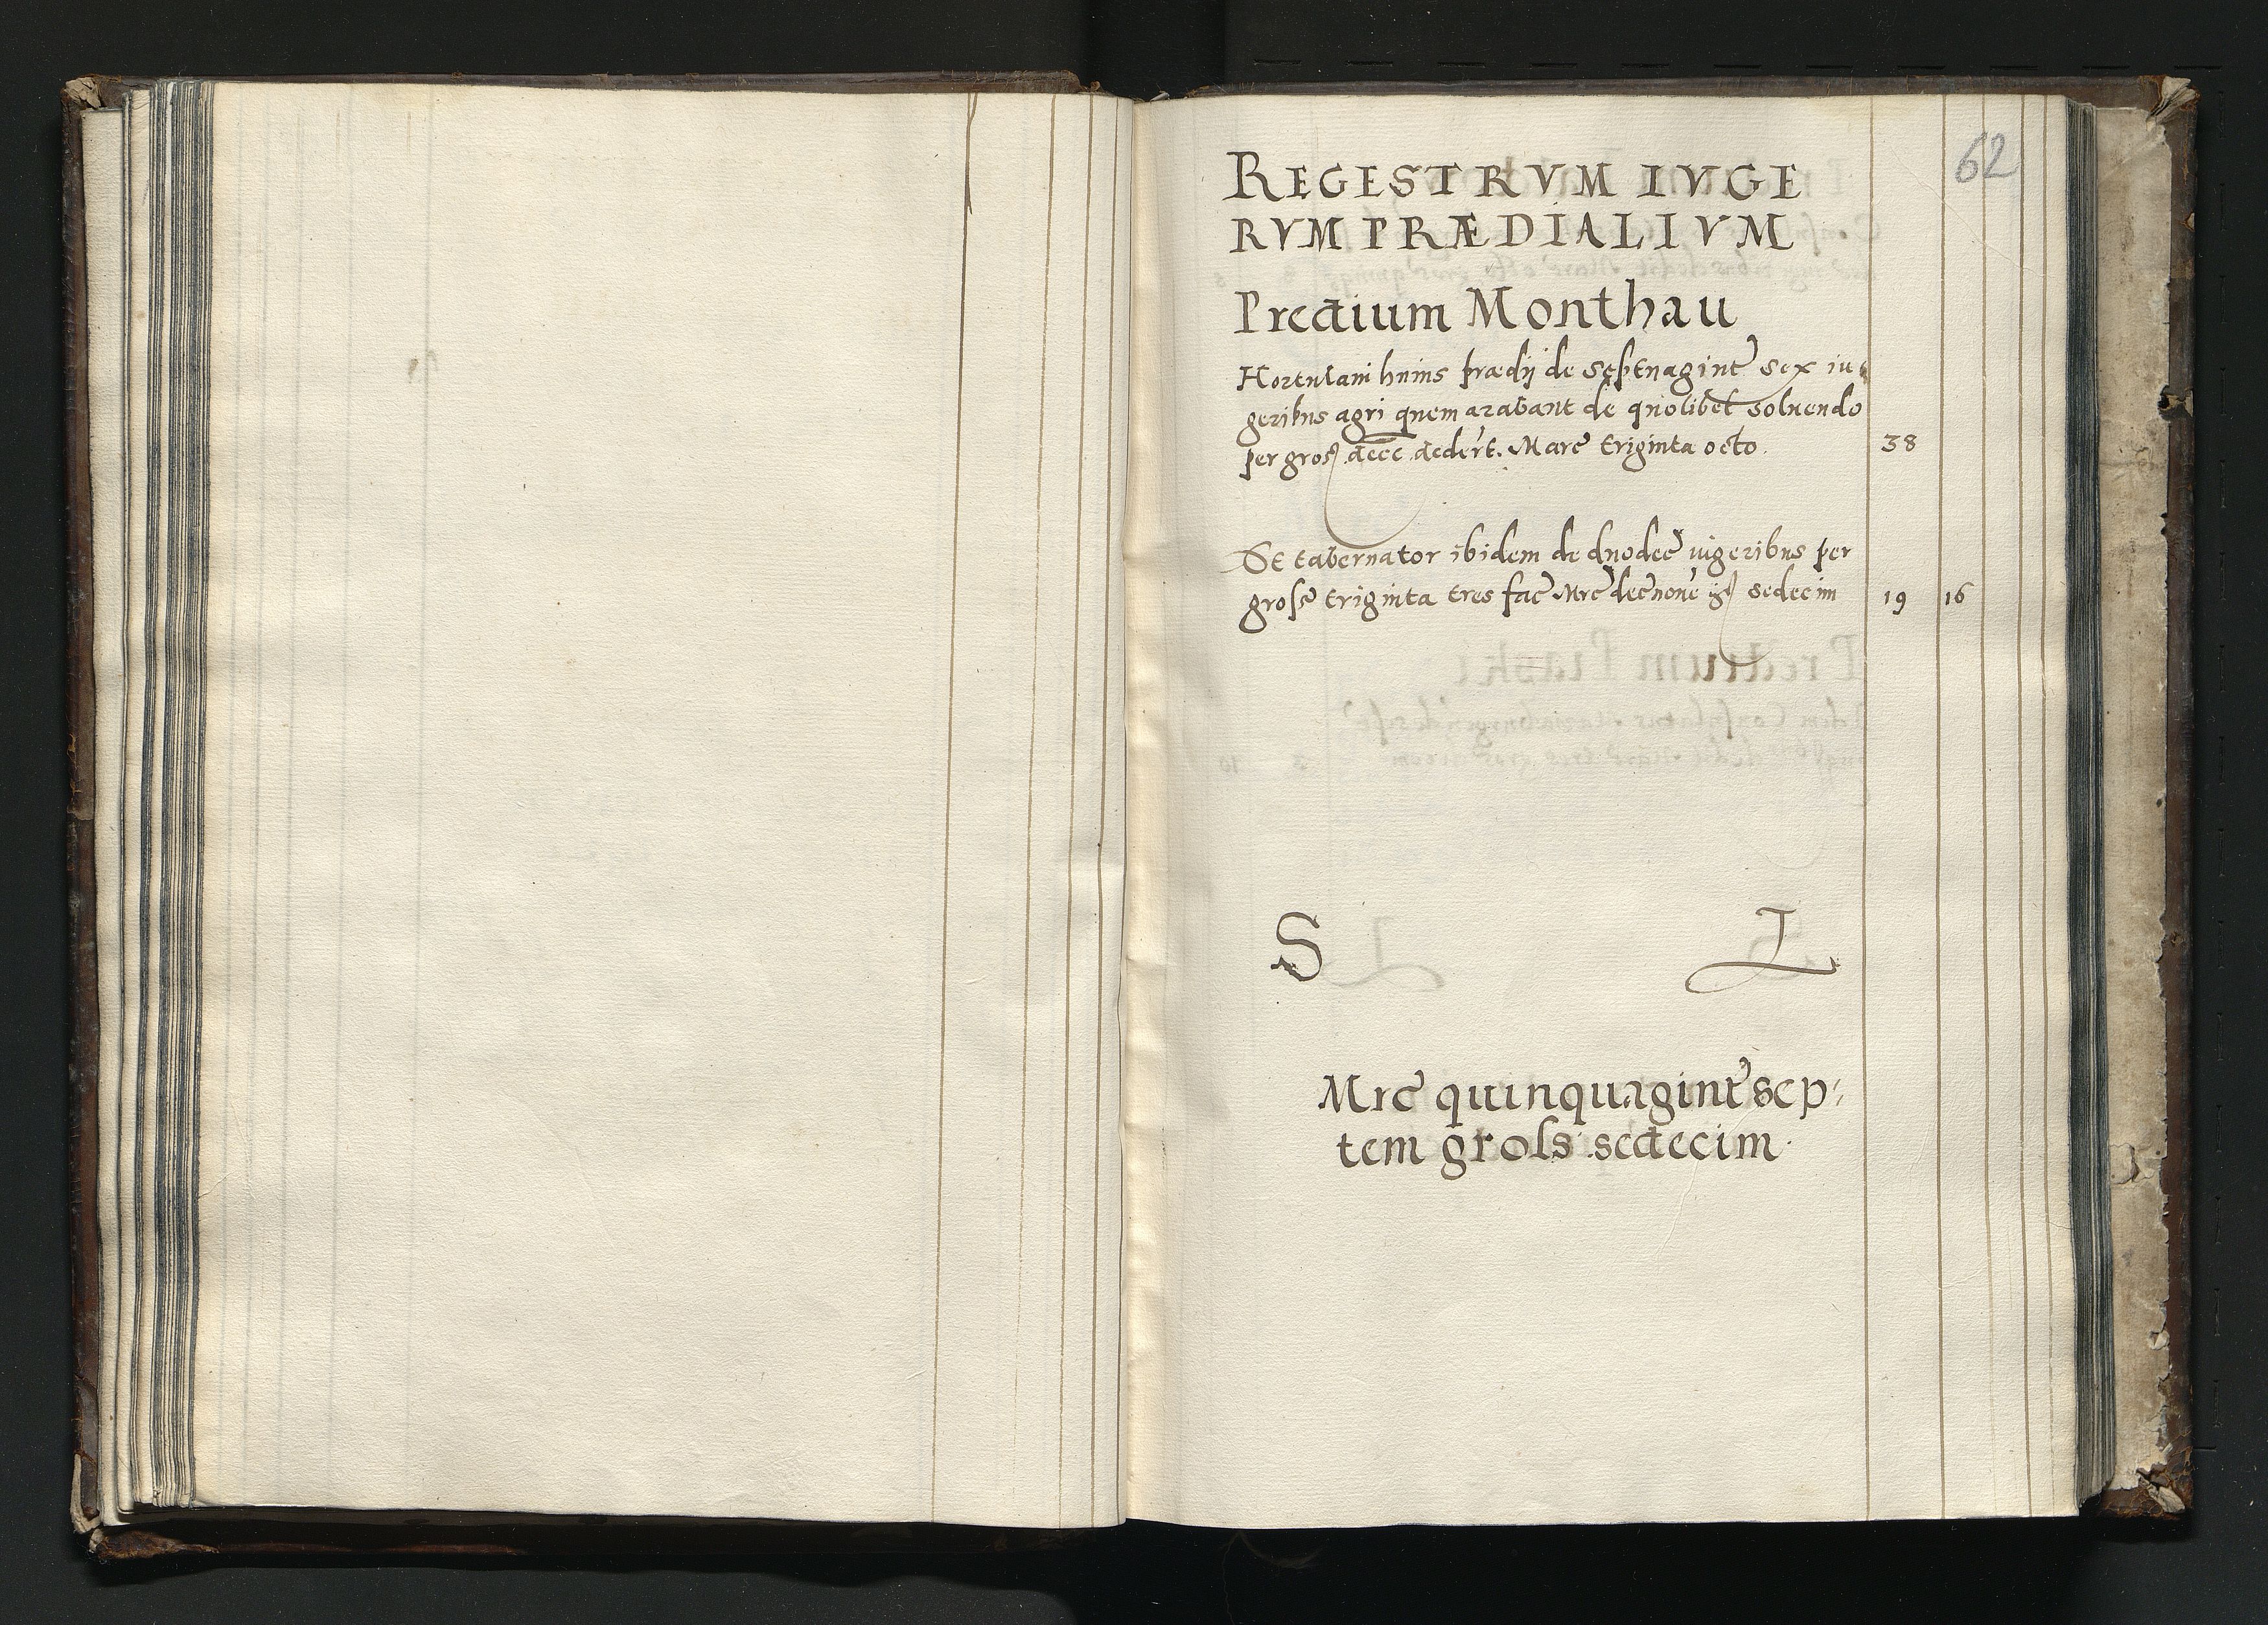 62
REGESTRVM IVGE
RVM PRÆDIALIVM
Predium Monthau
Hortulani huius prædij de septuagint sex iu
geribus agri quem arabant de quolibet soluendo
per gros dece dedert. Marc triginta octo. 38
Et tabernator ibidem de duodec iugeribus per
gross triginta tres fac Mrc decnoue gs sedecim 19 16
S L
Mrc quinquagint sep
tem gross sedecim.